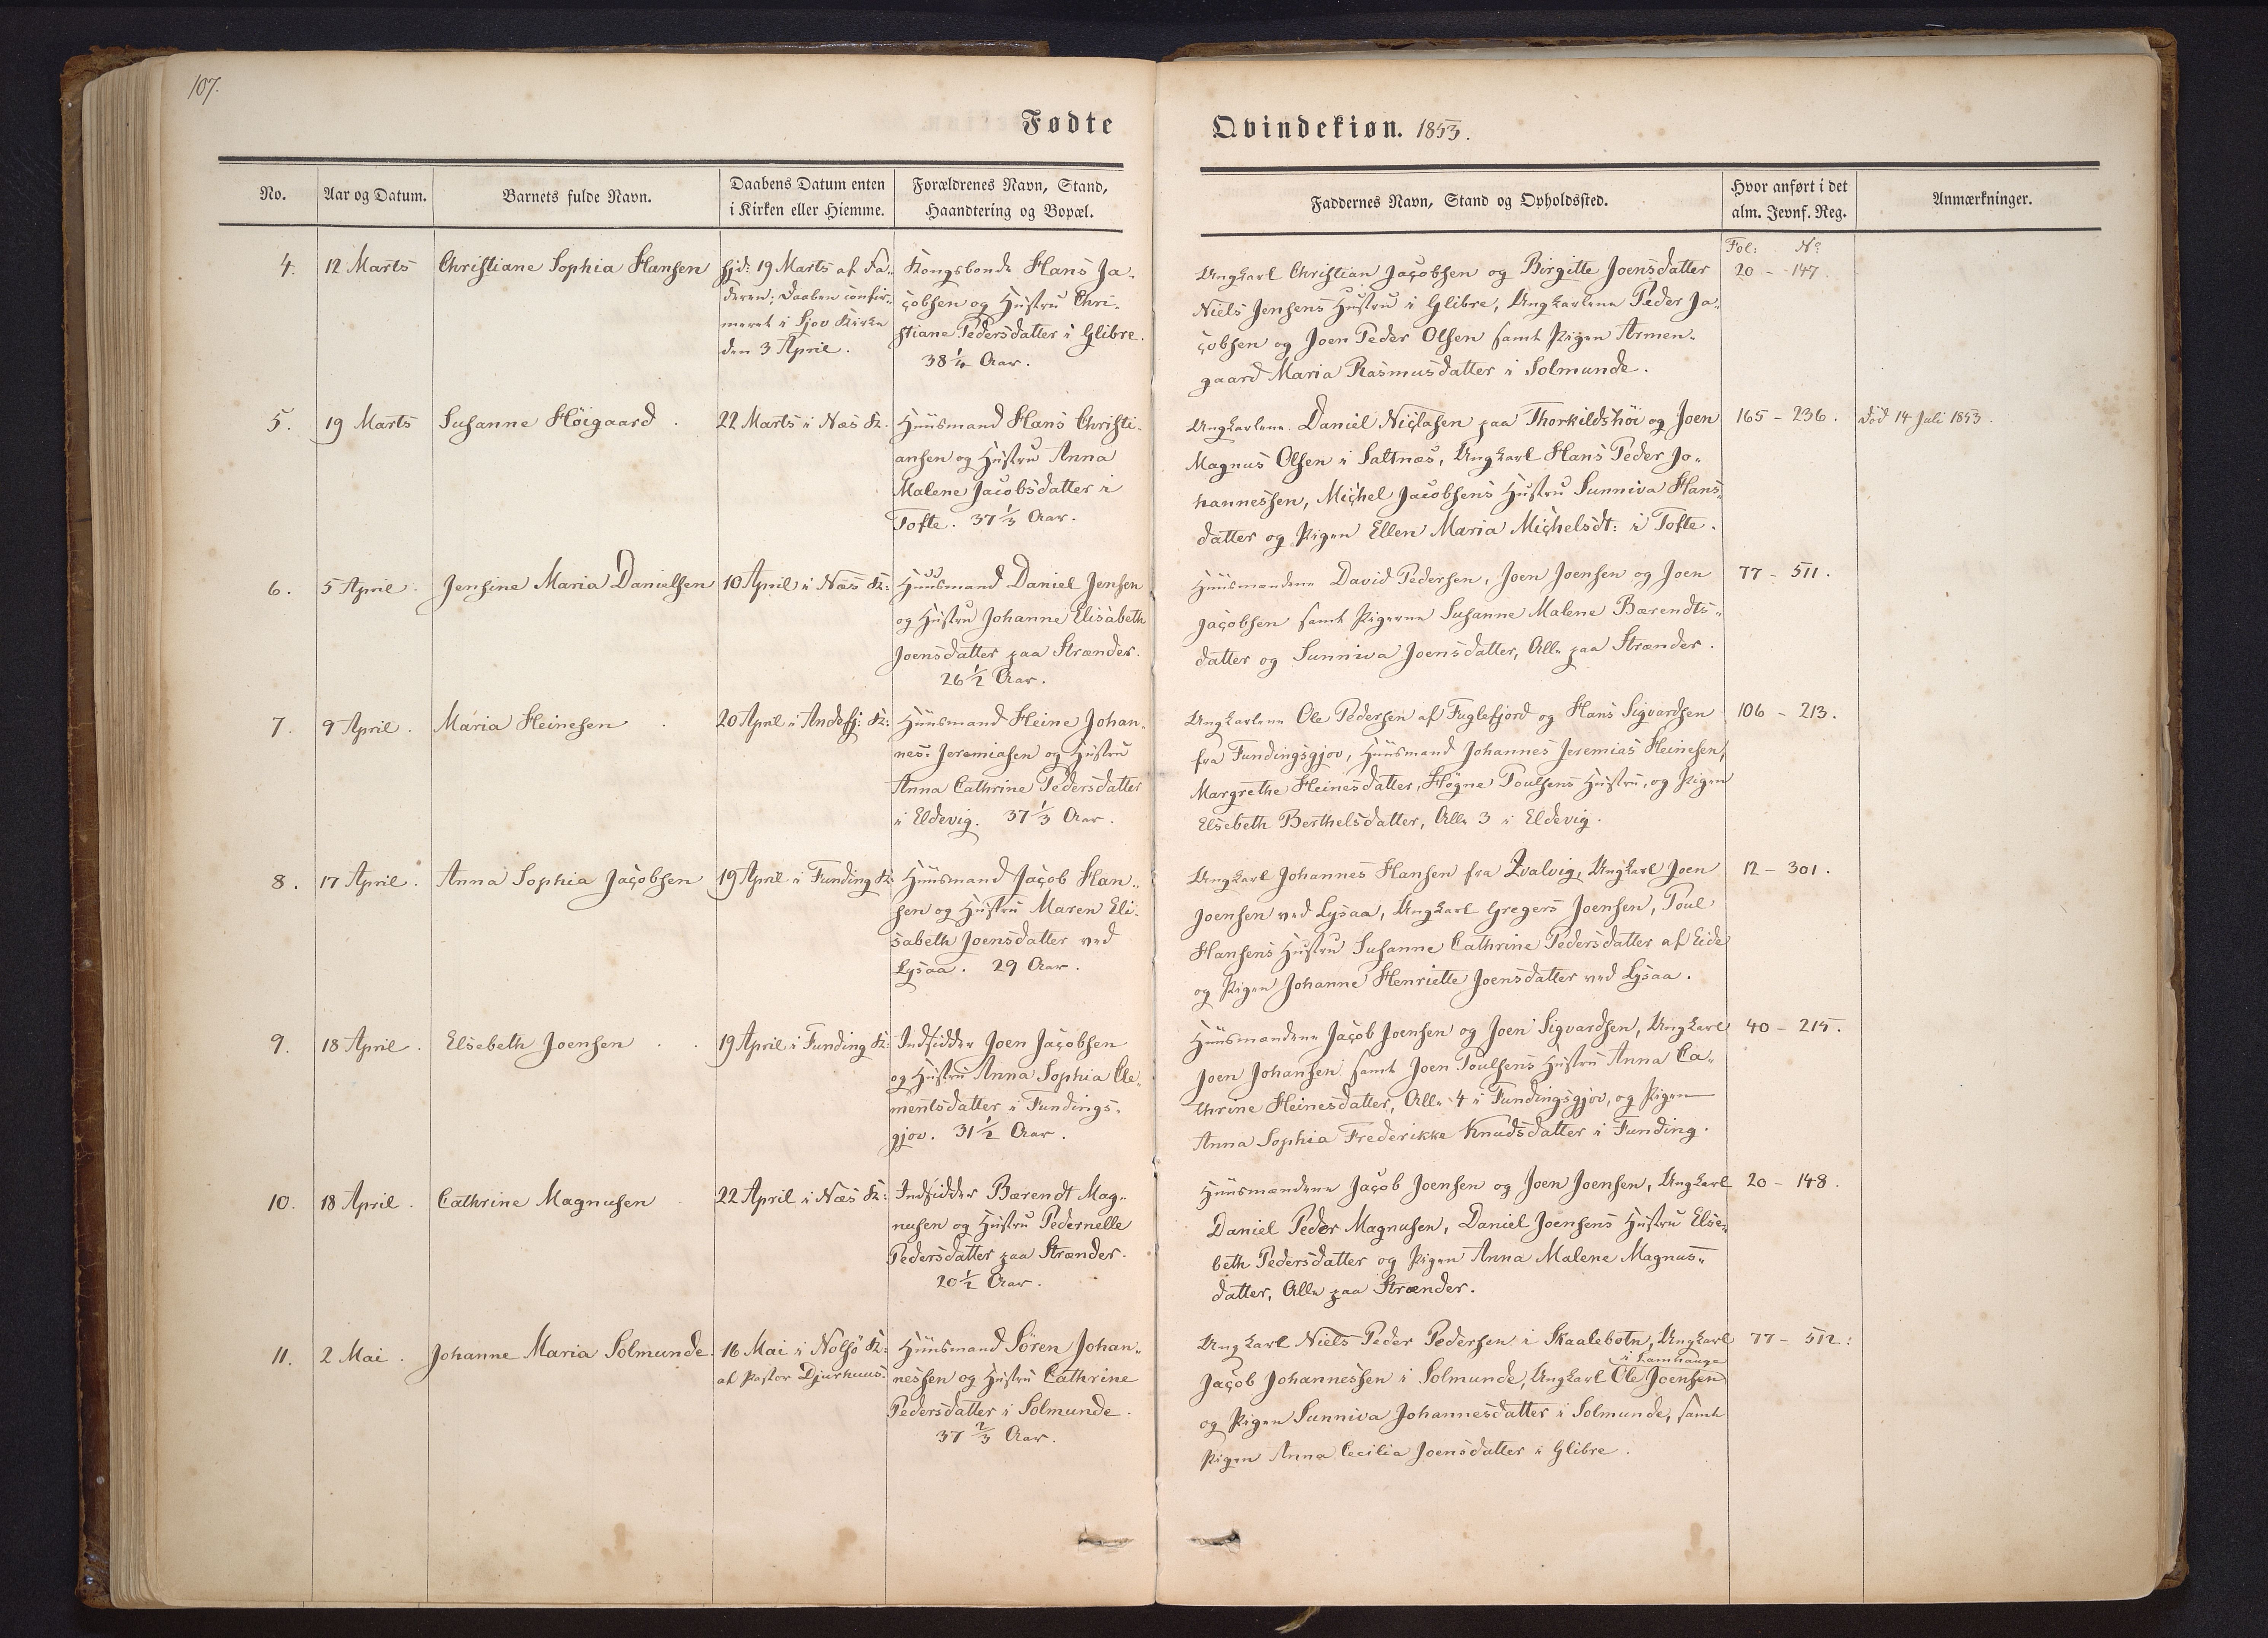 107.
Fødte
Qvindekiøn. 1853.
No.
Aar og Datum.
Barnets fulde Navn.
Daabens Datum enten
i Kirken eller Hiemme.
Forældrenes Navn, Stand,
Haandtering og Bopæl.
Faddernes Navn, Stand og Opholdssted.
Hvor anført i det
alm. Jevnf. Reg.
Anmærkninger.
Fol: No
4. 12 Marts Christiane Sophia Hansen
hjd: 19 Marts af Fa-
deren; Daaben confir-
meret i Sjov Kirke
den 3 April.
Kongsbonde Hans Ja-
cobsen og Hustru Chri-
stiane Pedersdatter i Glibre.
38 1/4 Aar.
Ungkarl Christian Jacobsen og Birgitte Joensdatter
Niels Jensens Hustru i Glibre, Ungkarlene Peder Ja-
cobsen og Joen Peder Olsen samt Pigen Armen-
gaard Maria Rasmusdatter i Solmunde.
20 - 147.
5. 19 Marts Susanne Höigaard.
22 Marts i Næs K.
Huusmand Hans Christi-
ansen og Hustru Anna
Malene Jacobsdatter i
Tofte. 37 1/3 Aar.
Ungkarlene Daniel Niclasen paa Thorkildshöi og Joen
Magnus Olsen i Saltnæs, Ungkarl Hans Peder Jo-
hannessen, Michel Jacobsens Hustru Sunniva Hans-
datter og Pigen Ellen Maria Michelsdt: i Tofte.
165 - 236.
död 14 Juli 1853.
6. 5 April. Jensine Maria Danielsen
10 April i Næs K:
Huusmand Daniel Jensen
og Hustru Johanne Elisabeth
Joensdatter paa Strænder.
26 1/2 Aar.
Huusmændene David Pedersen, Joen Joensen og Joen
Jacobsen samt Pigerne Susanne Malene Bærendts-
datter og Sunniva Joensdatter, Alle paa Strænder.
77 - 511.
7. 9 April. Maria Heinesen.
20 April i Andefj: K:
Huusmand Heine Johan-
nes: Jeremiasen og Hustru
Anna Cathrine Pedersdatter
i Eldevig. 37 1/3 Aar.
Ungkarlene Ole Pedersen af Fuglefjord og Hans Sigvardsen
fra Fundingsgjov, Huusmand Johannes Jeremias Heinesen,
Margrethe Heinesdatter, Högne Poulsens Hustru, og Pigen
Elsebeth Berthelsdatter, Alle 3 i Eldevig.
106 - 213.
8. 17 April. Anna Sophia Jacobsen
19 April i Funding K.
Huusmand Jacob Han-
sen og Hustru Maren Eli-
sabeth Joensdatter ved
Lysaa. 29 Aar.
Ungkarl Johannes Hansen fra Qvalvig, Ungkarl Joen
Joensen ved Lysaa, Ungkarl Gregers Joensen, Poul
Hansens Hustru Susanne Cathrine Pedersdatter af Eide
og Pigen Johanne Henriette Joensdatter ved Lysaa.
12 - 301.
9. 18 April. Elsebeth Joensen.
19 April i Funding K:
Indsidder Joen Jacobsen
og Hustru Anna Sophia Cle-
mentsdatter i Fundings-
gjov. 31 1/2 Aar.
Huusmændene Jacob Joensen og Joen Sigvardsen, Ungkarl
Joen Johansen samt Joen Poulsens Hustru Anna Ca-
thrine Heinesdatter, Alle 4 i Fundingsgjov, og Pigen
Anna Sophia Frederikke Knudsdatter i Funding.
40 - 215.
10. 18 April. Cathrine Magnusen
22 April i Næs K:
Indsidder Bærendt Mag-
nusen og Hustru Pedernelle
Pedersdatter paa Strænder.
20 1/2 Aar.
Huusmændene Jacob Joensen og Joen Joensen, Ungkarl
Daniel Peder Magnusen, Daniel Joensens Hustru Else-
beth Pedersdatter og Pigen Anna Malene Magnus-
datter, Alle paa Strænder.
20 - 148.
11. 2 Mai. Johanne Maria Solmunde.
16 Mai i Nolsö K:
af Pastor Djurhuus.
Huusmand Sören Johan-
nessen og Hustru Cathrine
Pedersdatter i Solmunde.
37 2/3 Aar.
Ungkarl Niels Peder Pedersen i Skaalebotn, Ungkarl
i Lamhauge
Jacob Johannessen i Solmunde, Ungkarl Ole Joensen
og Pigen Sunniva Johannesdatter i Solmunde, samt
Pigen Anna Cecilia Joensdatter i Glibre.
77 - 512: